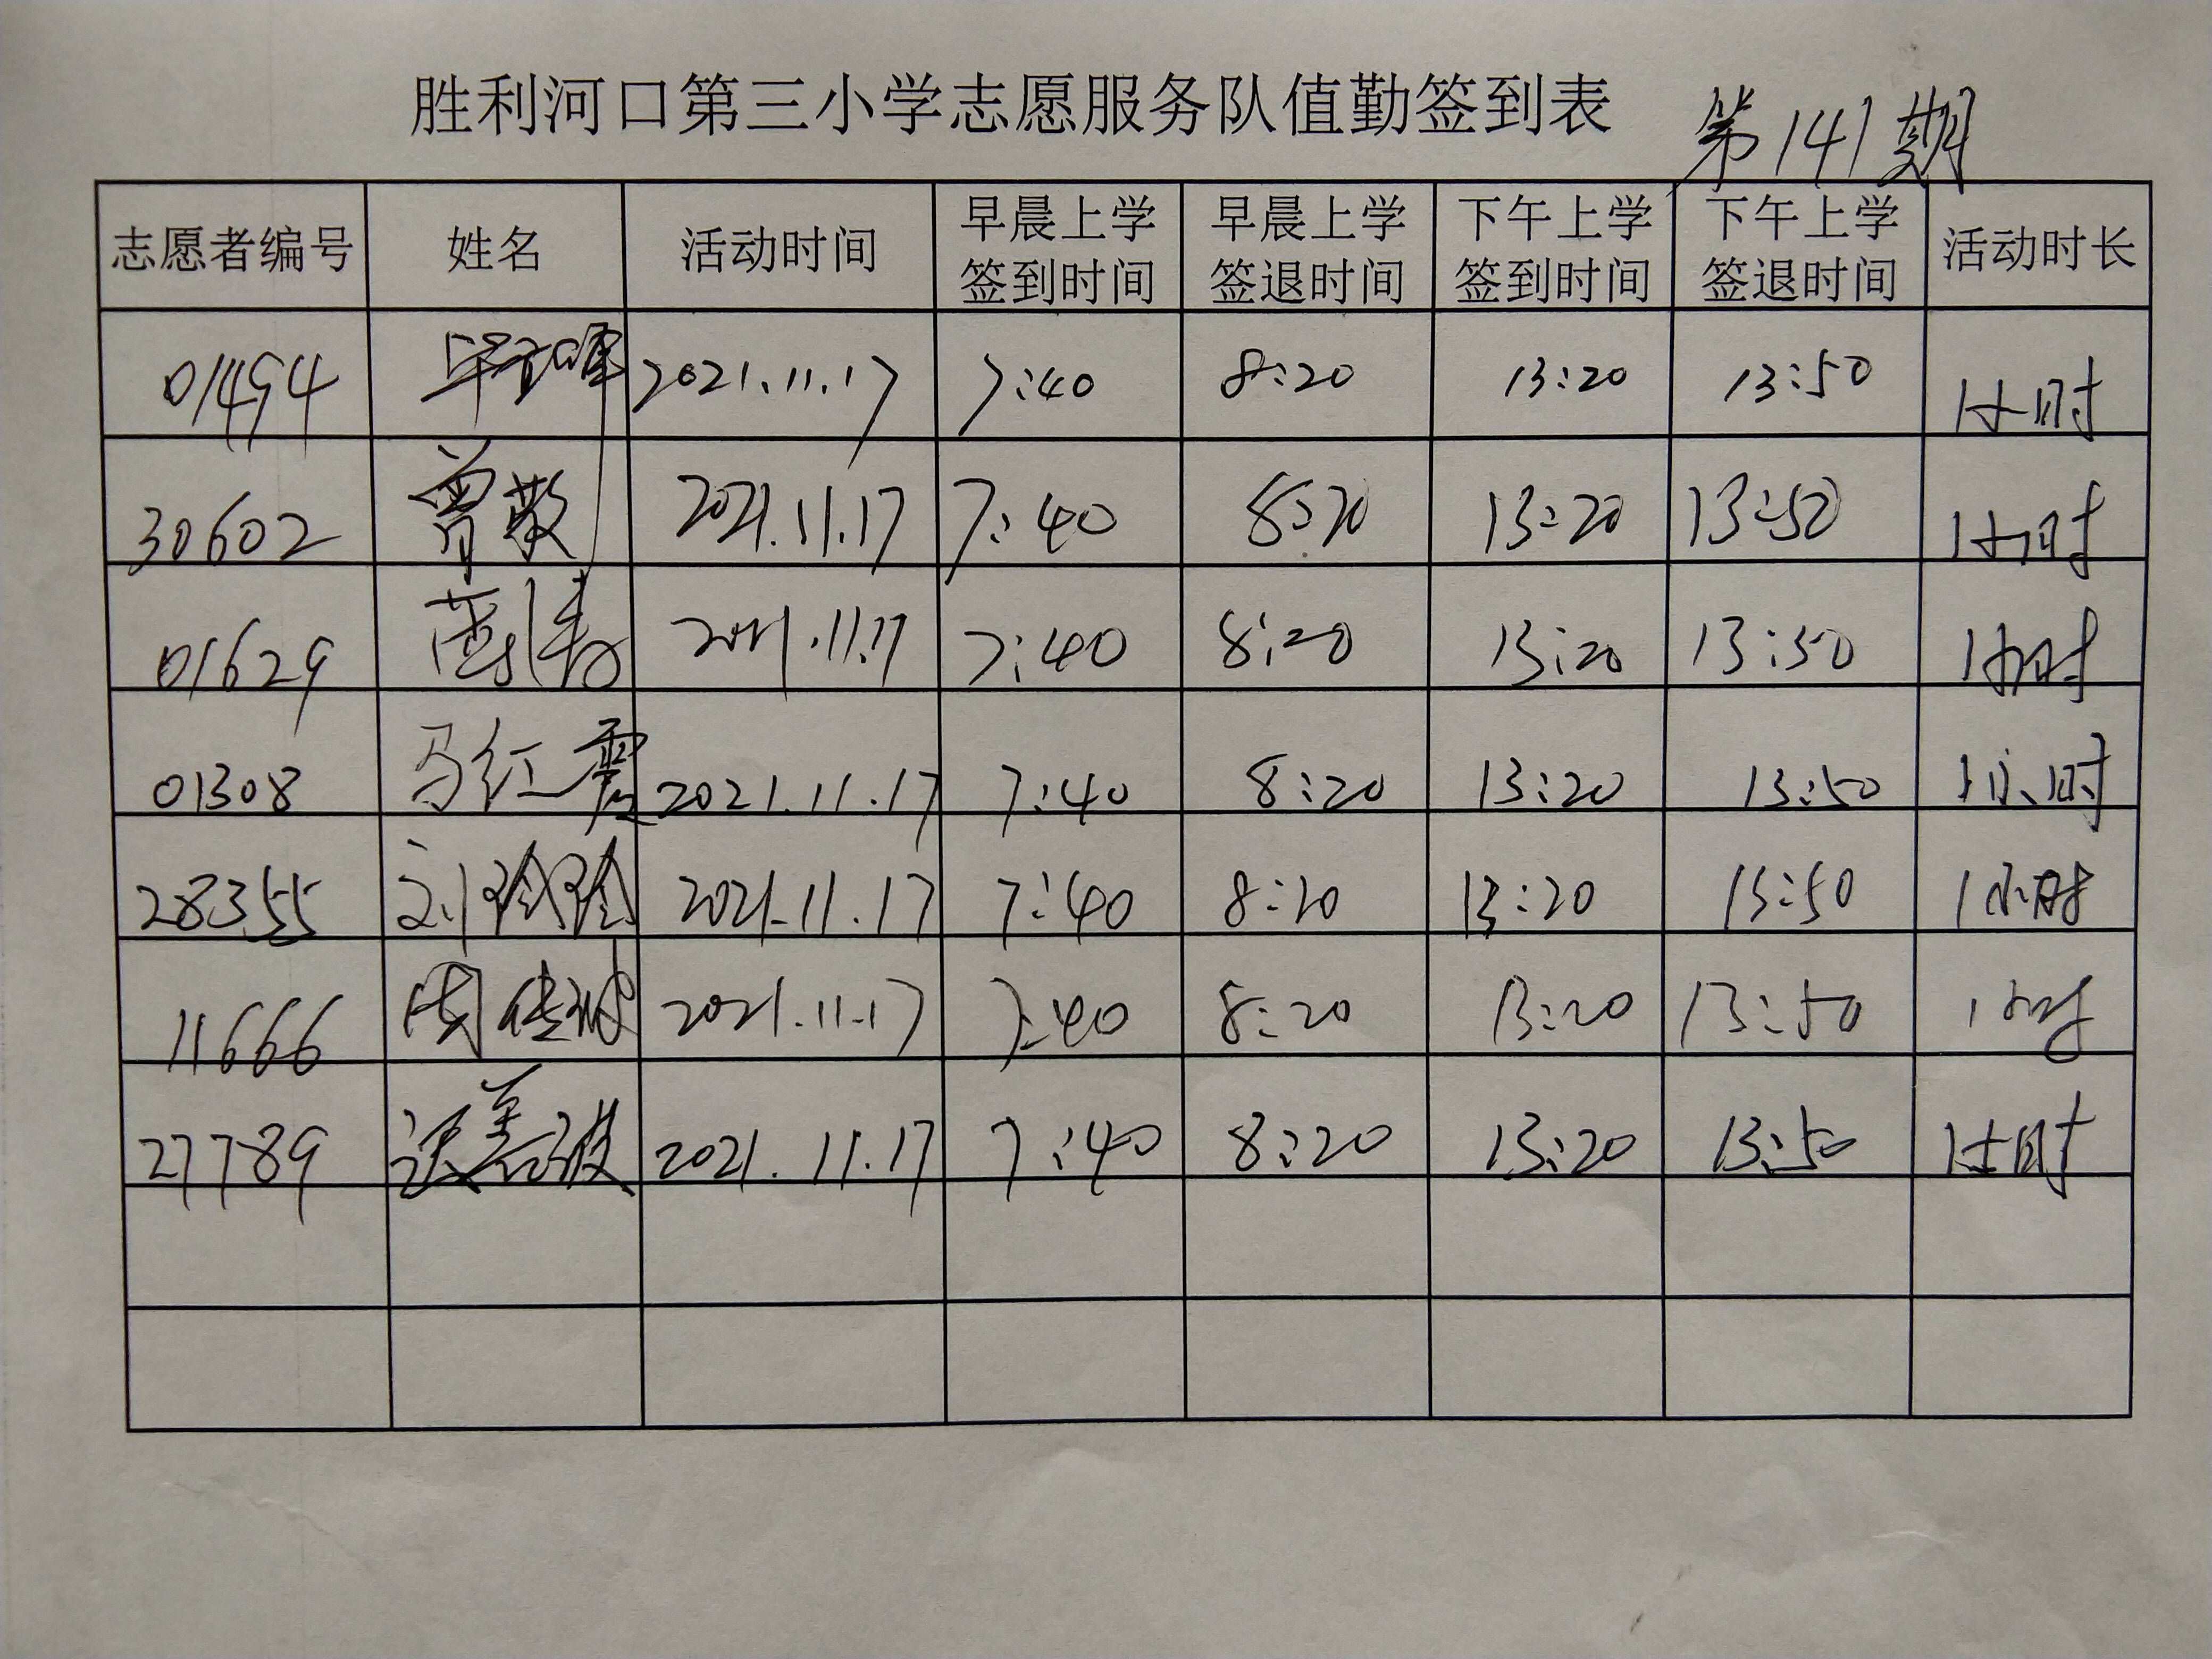 胜利河口第三小学志愿服务队值勤签到表 第141期
志愿者编号 姓名 活动时间 早晨上学签到时间 早晨上学签退时间 下午上学签到时间 下午上学签退时间 活动时长
01494 2021.11.17 7:40 8:20 13:20 13:50 1小时
30602 曾敬 2021.11.17 7:40 8:20 13:20 13:50 1小时
01629 2021.11.17 7:40 8:20 13:20 13:50 1小时
01308 马红霞 2021.11.17 7:40 8:20 13:20 13:50 1小时
28355 刘玲玲 2021.11.17 7:40 8:20 13:20 13:50 1小时
11666 2021.11.17 7:40 8:20 13:20 13:50 1小时
27789 2021.11.17 7:40 8:20 13:20 13:50 1小时